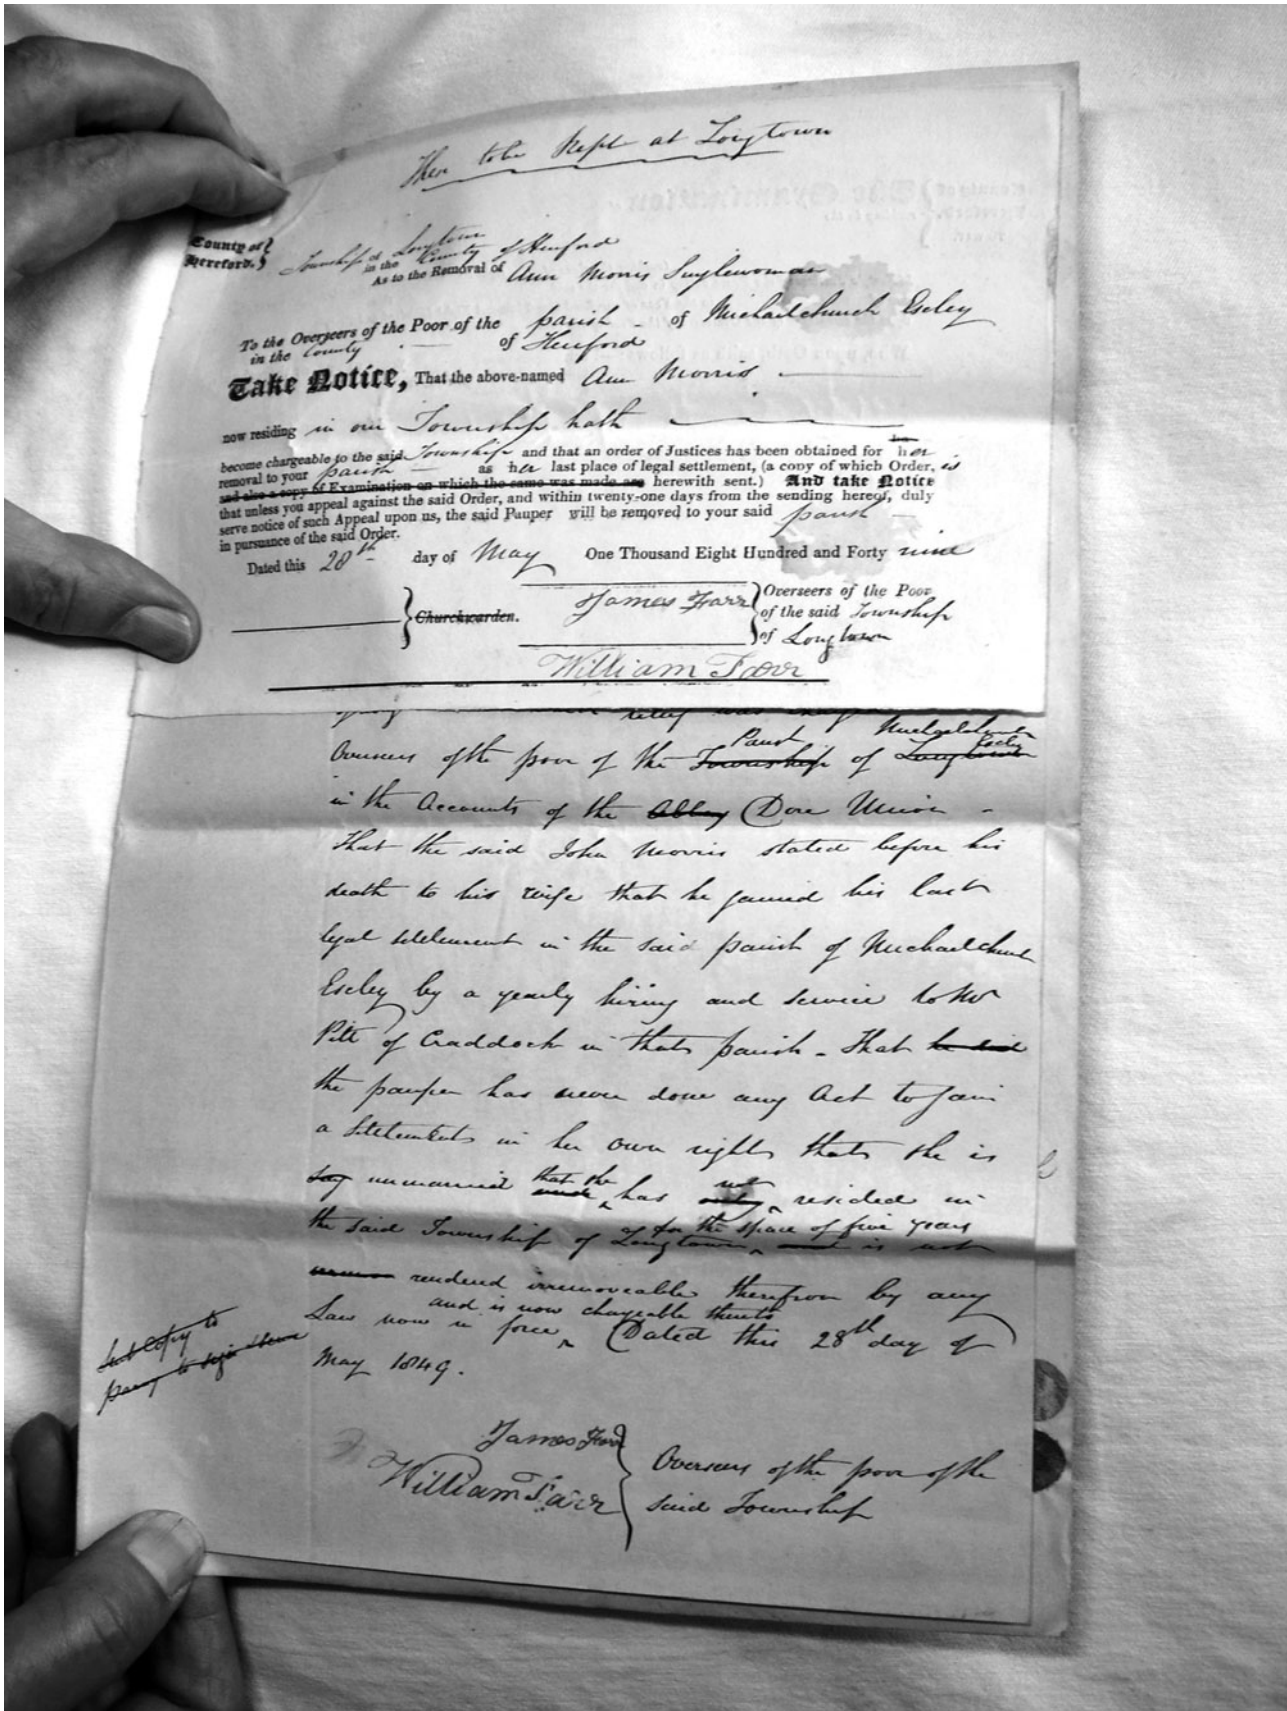 These to be kept at Longtown
County of Hereford.
Township of Longtown
in the County of Hereford
As to the Removal of Ann Morris Singlewoman
To the Overseers of the Poor of the parish of Michaelchurch Escley
in the County of Hereford
Take Notice, That the above-named Ann Morris
now residing in our Township hath
become chargeable to the said Township and that an order of Justices has been obtained for her
removal to your parish as her last place of legal settlement, (a copy of which Order, is
and also a copy of Examination on which the same was made are herewith sent.) And take Notice
that unless you appeal against the said Order, and within twenty-one days from the sending hereof, duly
serve notice of such Appeal upon us, the said Pauper will be removed to your said parish
in pursuance of the said Order.
Dated this 28th day of May One Thousand Eight Hundred and Forty nine
Churchwarden.
James Farr
Overseers of the Poor
of the said Township
of Longtown
William Farr
relief was
Parish Michaelchurch Escley
Overseers of the poor of the Township of Longtown
in the Accounts of the Abbey Dore Union -
That the said John Morris stated before his
death to his wife that he gained his last
legal settlement in the said parish of Michaelchurch
Escley by a yearly hiring and service to Mr
Pitt of Craddock in that parish - That he did
the pauper has never done any Act to gain
a settlement in her own right that she is
that she not
say unmarried has resided in
as for the space of five years
the said Township of Longtown and is not
rendered irremoveable therefrom by any
and is now chargeable thereto
Law now in force Dated this 28th day of
May 1849.
James Farr
William Farr
Overseers of the poor of the
said Township